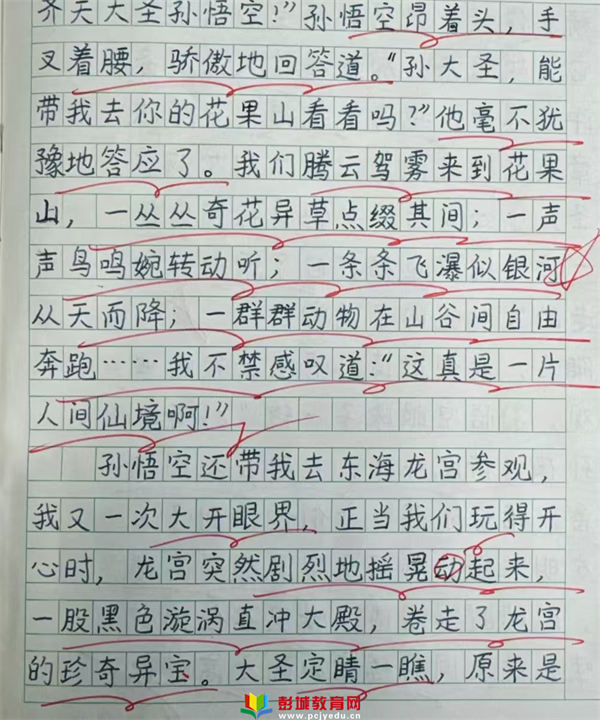 齐天大圣孙悟空！”孙悟空昂着头，手
叉着腰，骄傲地回答道。“孙大圣，能
带我去你的花果山看看吗？”他毫不犹
豫地答应了。我们腾云驾雾来到花果
山，一丛丛奇花异草点缀其间；一声
声鸟鸣婉转动听；一条条飞瀑似银河
从天而降；一群群动物在山谷间自由
奔跑……我不禁感叹道：“这真是一片
人间仙境啊！”
孙悟空还带我去东海龙宫参观，
我又一次大开眼界，正当我们玩得开
心时，龙宫突然剧烈地摇晃动起来，
一股黑色漩涡直冲大殿，卷走了龙宫
的珍奇异宝。大圣定睛一瞧，原来是
彭城教育网
www.pcjyedu.cn